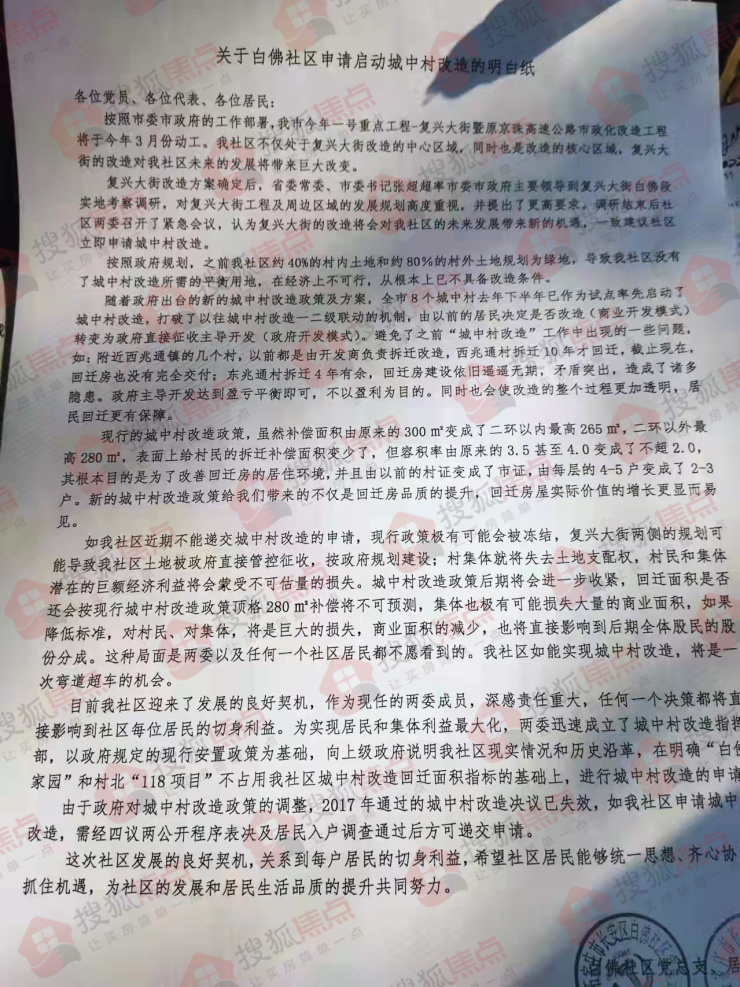 关于白佛社区申请启动城中村改造的明白纸
各位党员、各位代表、各位居民：
按照市委市政府的工作部署，我市今年一号重点工程-复兴大街暨原京珠高速公路市政化改造工程
将于今年3月份动工。我社区不仅处于复兴大街改造的中心区域，同时也是改造的核心区域，复兴大
街的改造对我社区未来的发展将带来巨大改变。
复兴大街改造方案确定后，省委常委、市委书记张超超率市委市政府主要领导到复兴大街白佛段
实地考察调研，对复兴大街工程及周边区域的发展规划高度重视，并提出了更高要求。调研结束后社
区两委召开了紧急会议，认为复兴大街的改造将会对我社区的未来发展带来新的机遇，一致建议社区
立即申请城中村改造。
按照政府规划，之前我社区约40%的村内土地和约80%的村外土地规划为绿地，导致我社区没有
了城中村改造所需的平衡用地，在经济上不可行，从根本上已不具备改造条件。
随着政府出台的新的城中村改造政策及方案，全市8个城中村去年下半年已作为试点率先启动了
城中村改造，打破了以往城中村改造一二级联动的机制，由以前的居民决定是否改造（商业开发模式）
转变为政府直接征收主导开发（政府开发模式）。避免了之前“城中村改造”工作中出现的一些问题，
如：附近西兆通镇的几个村，以前都是由开发商负责拆迁改造，西兆通村拆迁10年才回迁，截止现在，
回迁房也没有完全交付；东兆通村拆迁4年有余，回迁房建设依旧遥遥无期，矛盾突出，造成了诸多
隐患。政府主导开发达到盈亏平衡即可，不以盈利为目的。同时也会使改造的整个过程更加透明，居
民回迁更有保障。
现行的城中村改造政策，虽然补偿面积由原来的300㎡变成了二环以内最高265㎡，二环以外最
高280㎡，表面上给村民的拆迁补偿面积变少了，但容积率由原来的3.5甚至4.0变成了不超2.0，
其根本目的是为了改善回迁房的居住环境，并且由以前的村证变成了市证，由每层的4-5户变成了2-3
户。新的城中村改造政策给我们带来的不仅是回迁房品质的提升，回迁房屋实际价值的增长更显而易
见。
如我社区近期不能递交城中村改造的申请，现行政策极有可能会被冻结，复兴大街两侧的规划可
能导致我社区土地被政府直接管控征收，按政府规划建设；村集体就将失去土地支配权，村民和集体
潜在的巨额经济利益将会蒙受不可估量的损失。城中村改造政策后期将会进一步收紧，回迁面积是否
还会按现行城中村改造政策顶格280㎡补偿将不可预测，集体也极有可能损失大量的商业面积，如果
降低标准，对村民、对集体，将是巨大的损失，商业面积的减少，也将直接影响到后期全体股民的股
份分成。这种局面是两委以及任何一个社区居民都不愿看到的。我社区如能实现城中村改造，将是一
次弯道超车的机会。
目前我社区迎来了发展的良好契机，作为现任的两委成员，深感责任重大，任何一个决策都将直
接影响到社区每位居民的切身利益。为实现居民和集体利益最大化，两委迅速成立了城中村改造指挥
部，以政府规定的现行安置政策为基础，向上级政府说明我社区现实情况和历史沿革，在明确“白佛
家园”和村北“118项目”不占用我社区城中村改造回迁面积指标的基础上，进行城中村改造的申请
由于政府对城中村改造政策的调整，2017年通过的城中村改造决议已失效，如我社区申请城中
改造，需经四议两公开程序表决及居民入户调查通过后方可递交申请。
这次社区发展的良好契机，关系到每户居民的切身利益，希望社区居民能够统一思想、齐心协
抓住机遇，为社区的发展和居民生活品质的提升共同努力。
白佛社区党总支、居
石家庄市长安区白佛社区
搜狐焦点
让买房简单一点